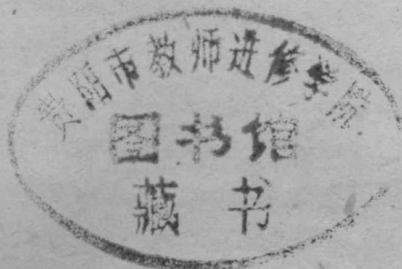 贵阳市教师进修学院
图书馆
藏书